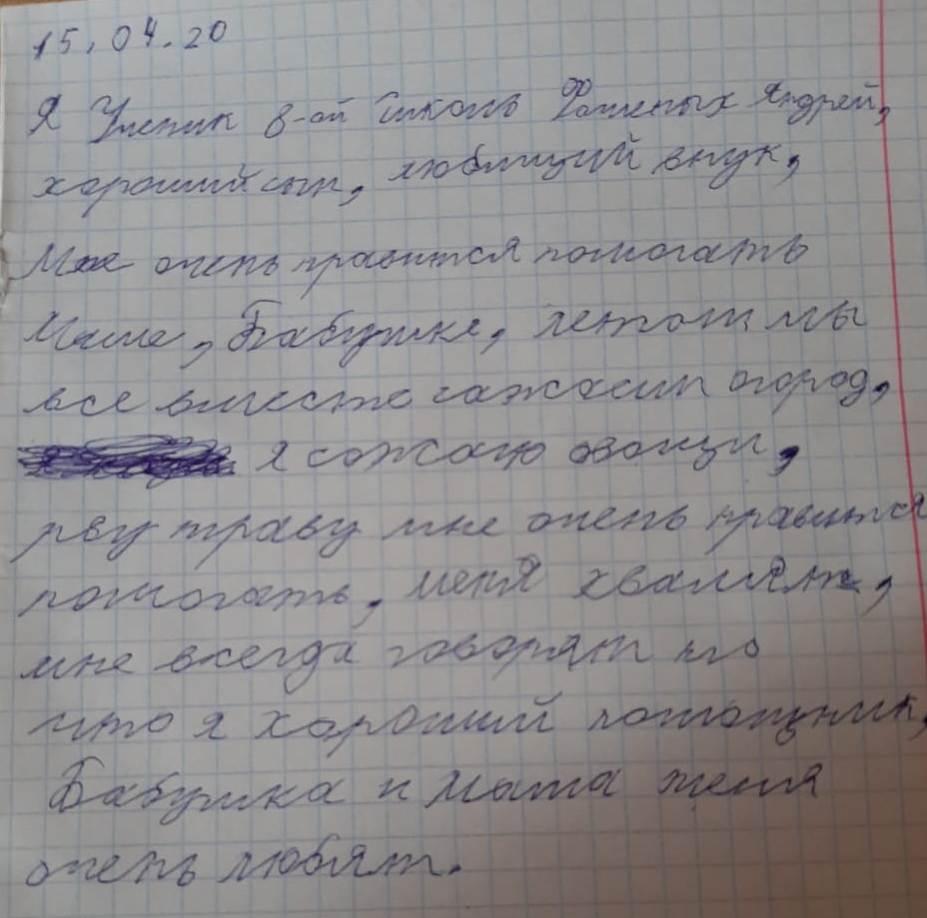 15.04.20
Я Ученик 8-ой школь Фоминых Андрей,
хороший сын, люблщий внук,
Мне очень нравится помогать
Маме, Бабушке, летом мы
все вместе сажаем огород,
я сожаю овощи,
рву траву мне очень нравится
помогать, меня хвалят,
мне всегда говорят
что я хороший помощник,
Бабушка и мама меня
очень любят.